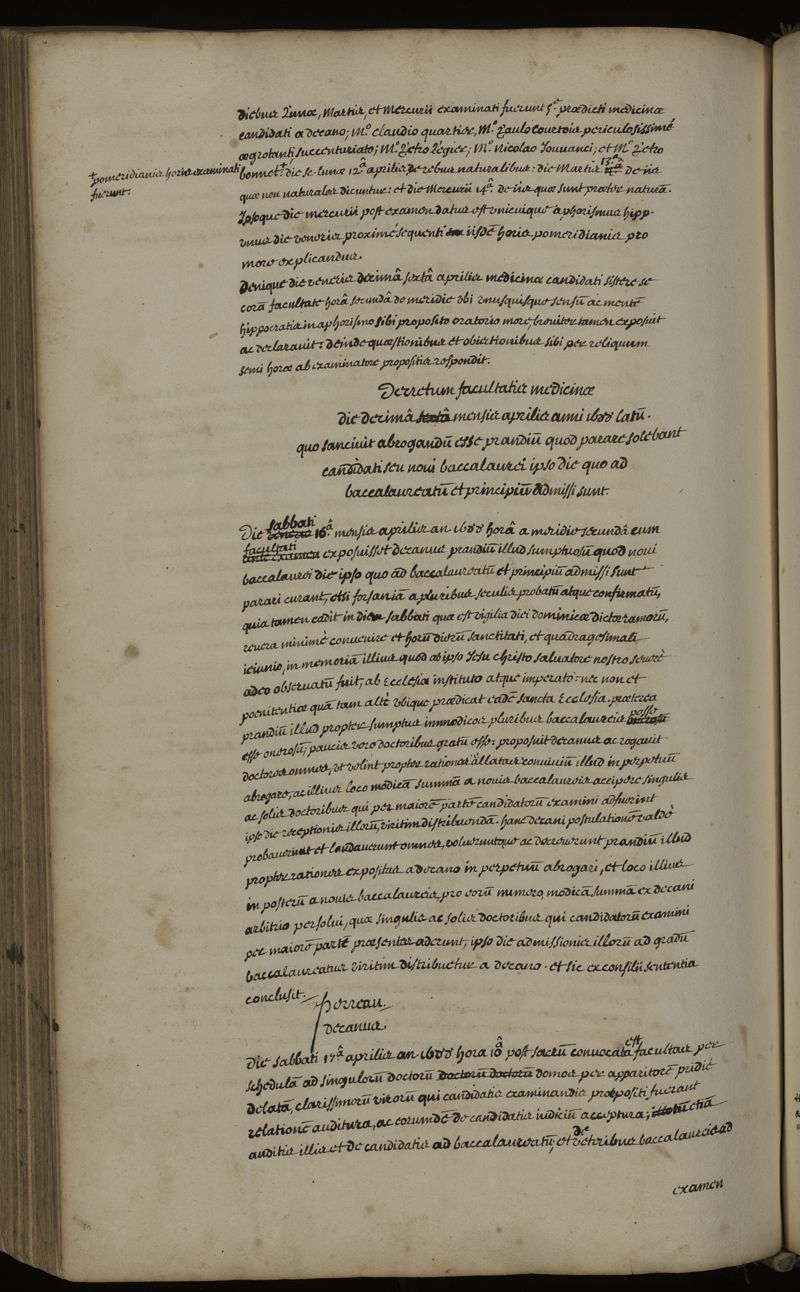 diebus Lunæ, Martis, et Mercurii examinati fuerunt 5.e prædicti medicinæ
candidati a decano; M.o claudio quartier, M.o Paulo Courtois periculosissimè
ægrotanti succenturiato; M.o Petro Legier; M.o Nicolao Jouuanci; et M.o Petro
bonnet.† die sc. lunæ 12.â aprilis de rebus naturalibus: die Martis 13.â de iis
†pomeridianis horis examinati
fuerunt.
quæ non naturales dicuntur: et die Mercurii 14.â de iis quæ sunt præter naturā.
Ipsoque die mercurii post examen datus est unicuique aphorismus hipp.
unus die veneris proximè sequenti iisdē horis pomeridianis pro
more explicandus.
Denique die veneris decimâ sextâ aprilis medicinæ candidati sistere se
corā facultate horâ secundâ de meridie vbi unusquisque sensū ac mentē
hippocratis in aphorismo sibi proposito oratorio more, breuiter tamen exposuit
ac declarauit: deinde quæstionibus et obiectionibus sibi per reliquum
semi horæ ab examinatore propositis respondit.
Decretum facultatis medicinæ
die decimâ sextâ mensis aprilis anni 1688 latū.
quo sanciuit abrogandū esse prandiū quod parare solebant
candidati seu noui baccalaurei ipso die quo ad
baccalaureatū et principiū admissi sunt.
Die sabbati 16.â mensis aprilis an 1688 horâ a meridie secundâ cum
facultati exposuisset decanus prandiū illud sumptuosū quod noui
baccalaurei die ipso quo ad baccalaureatū et principiū admissi sunt
parari curant, etsi forsania a pluribus seculis probatū atque confirmatū,
quia tamen cadit in diem sabbati quæ est vigilia diei dominicæ dictæ ramorū,
reuera minimè conuenire et horū dierū sanctitati, et quadragesimali
ieiunio, in memoriā illius quod ab ipso Jesu christo saluatore nostro seuerè
adeo obseruatū fuit, ab Ecclesia instituto atque imperato: nec non et
poenitentiæ quā tam altè vbique prædicat eadē sancta Ecclesia. præterea
prandiū illud propter sumptus immodicos pluribus baccalaureis posse
esse onerosū; paucis vero doctoribus gratū esse: proposuit decanus ac rogauit
doctores omnes, vt velint propter rationes allatas conuiuiū illud in perpetuū
abrogare, ac illius loco modicā summā a nouis baccalaureis accipere singulis
ac solis doctoribus qui per maiorē partē candidatorū examini adfuerint
ipso die receptionis illorū, viritim distribuendā. hanc decani postulationē valdè
probauerunt et laudauerunt omnes, volueruntque ac decreuerunt prandiū illud
propter rationes expositas a decano in perpetuū abrogari, et loco illius
in posterū a nouis baccalaureis, pro eorū numero, modicā summā ex decani
arbitrio persolui, quæ singulis ac solis doctoribus qui candidatorū examini
per maiorē partē præsentes aderunt, ipso die admissionis illorū ad gradū
baccalaureatus viritim distribuetur a decano. et sic ex consilii sententia
conclusit.
Perreau.
decanus.
Die sabbati 17.â aprilis an 1688 hora 10.â post sacrū conuocata est facultas per
schedulā ad singulorū doctorū domos per apparitorē pridiè
delatā, clarissimorū virorū qui candidatis examinandis præpositi fuerant
relationē auditura, ac eorumdē de candidatis iudiciū acceptura; etiā
auditis illis et de candidatis ad baccalaureatū, et de veteribus baccalaureis ad
examen